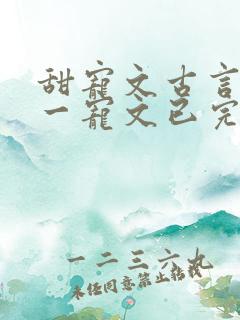 甜寵文古言
一寵文已完
一二三六九
未经同意禁止转载